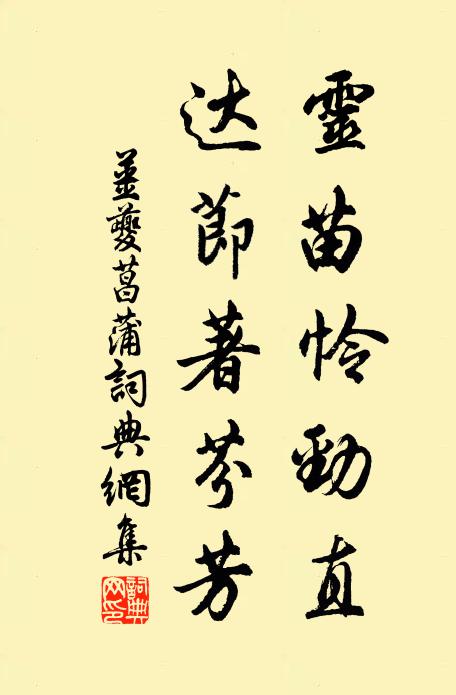 靈苗怜勁直
达節著芬芳
姜夔菖蒲詞典網集
詞典网印